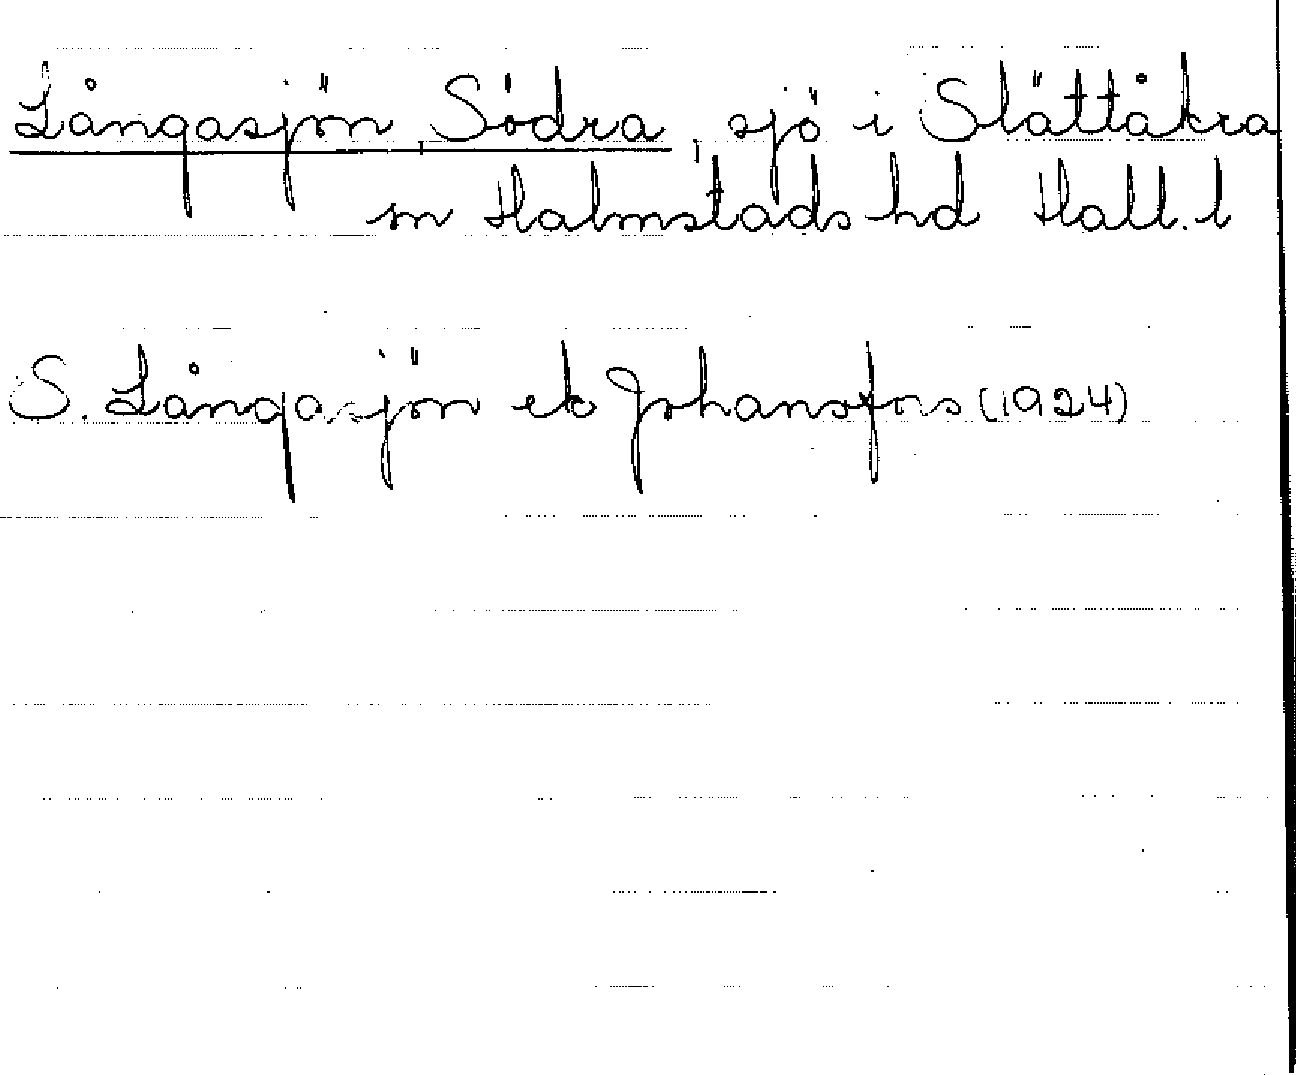 Långasjön, Södra, sjö i Slättåkra
sn Halmstads hd Hall. l
S. Långasjön ek Johansfors (1924)